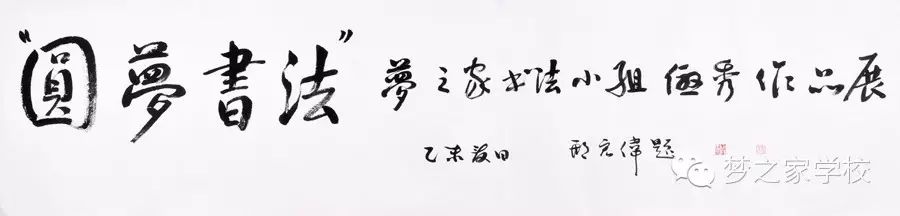 “圓夢書法” 夢之家书法小組優秀作品展
乙未夏日 邢 偉題
梦之家学校